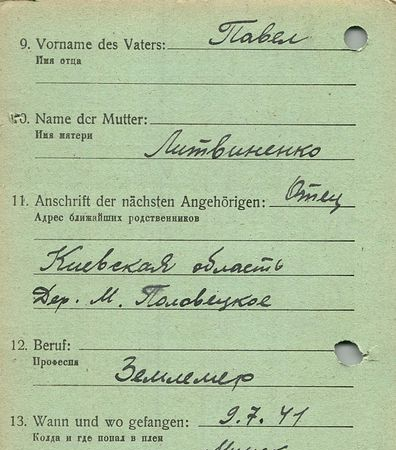 9. Vorname des Vaters: Павел
Имя отца
10. Name der Mutter:
Имя матери
Литвиненко
11. Anschrift der nächsten Angehörigen: Отец
Адрес ближайших родственников
Киевская область
Дер. М. Половецкое
12. Beruf:
Професия
Землемер
13. Wann und wo gefangen: 9.7.41
Колда и где попал в плен
Минск